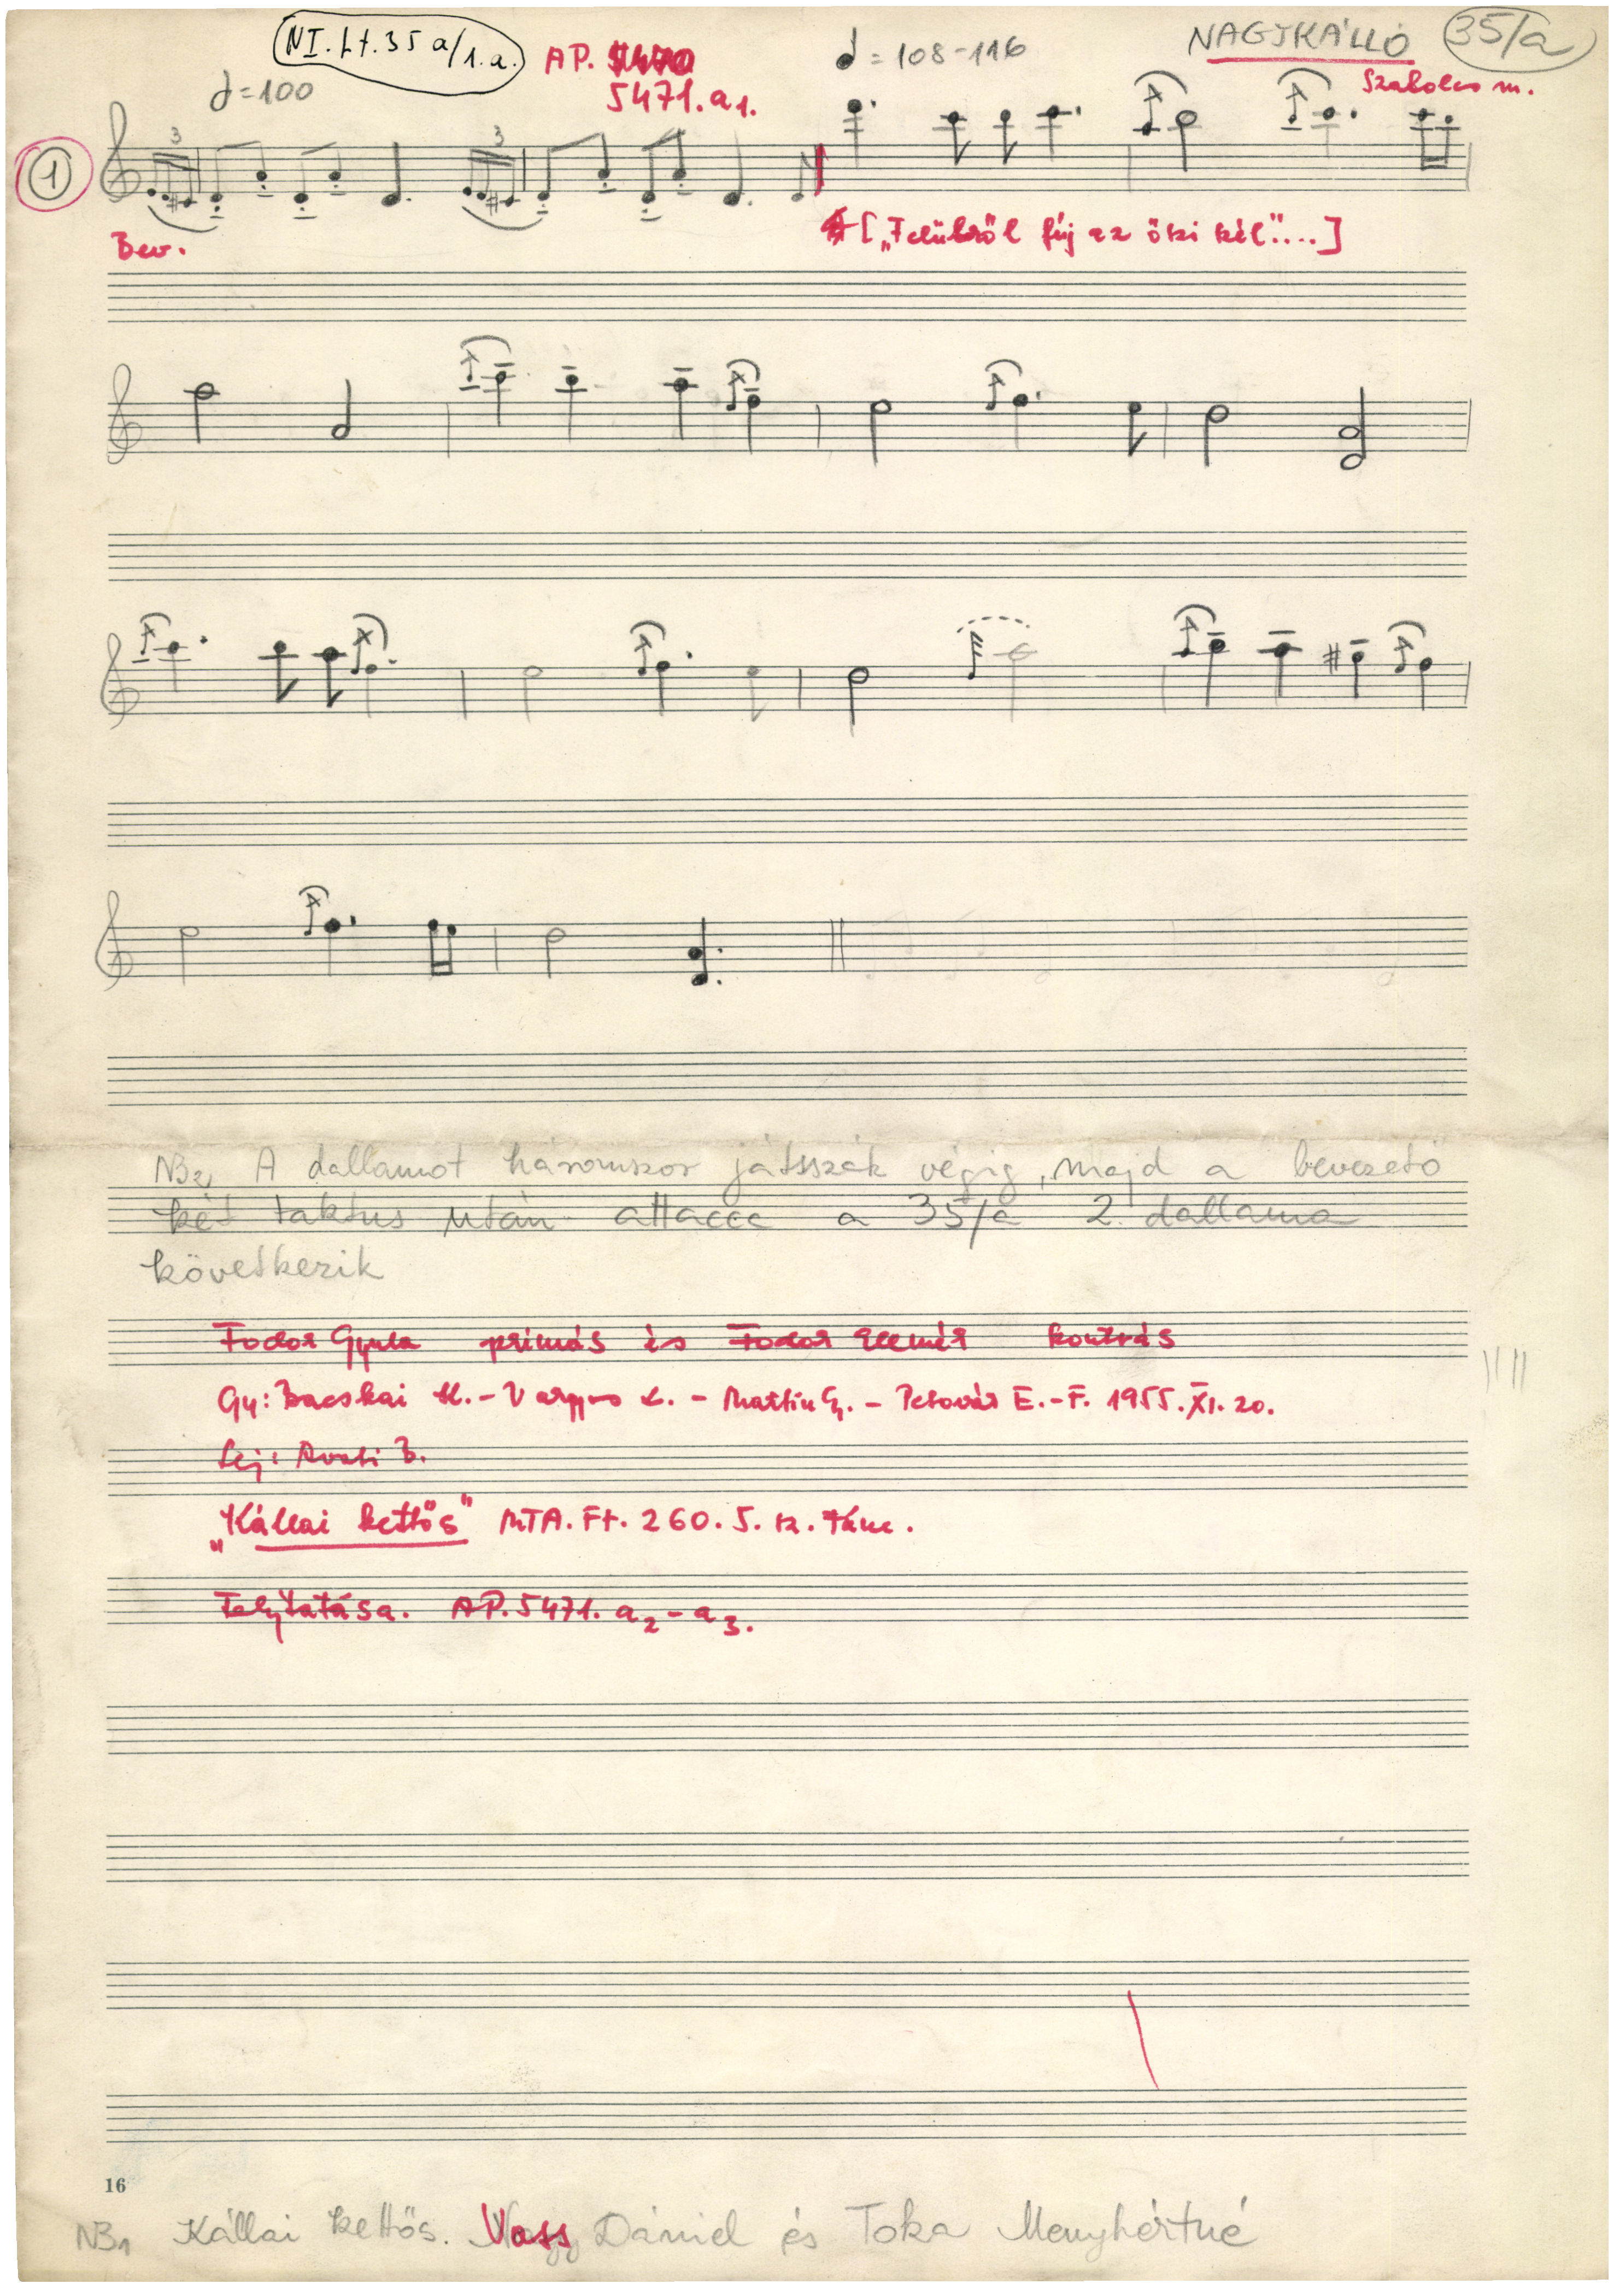 NI. Lt. 35 a/1.a.
AP. 5471.a1.
𝅗𝅥 = 108-116
NAGYKÁLLÓ
35/a
Szabolcs m.
𝅗𝅥 = 100
1
3
3
Bev.
A ["Felülről fúj az őszi szél"....]
NB2, A dallamot háromszor játsszák végig, majd a bevezető
két taktus után attacca a 35/a 2. dallama
következik
Fodor Gyula prímás és Fodor Elemér kontrás
Gy: Bacskai M. - Vargyas L. - Martin Gy. - Pesovár E.-F. 1955. XI. 20.
Lej: Avasi B.
"Kállai kettős" MTA. Ft. 260. 5. sz. tánc.
Folytatása. AP. 5471. a2 - a3.
16
NB1 Kállai kettős. Vass Dániel és Toka Menyhértné